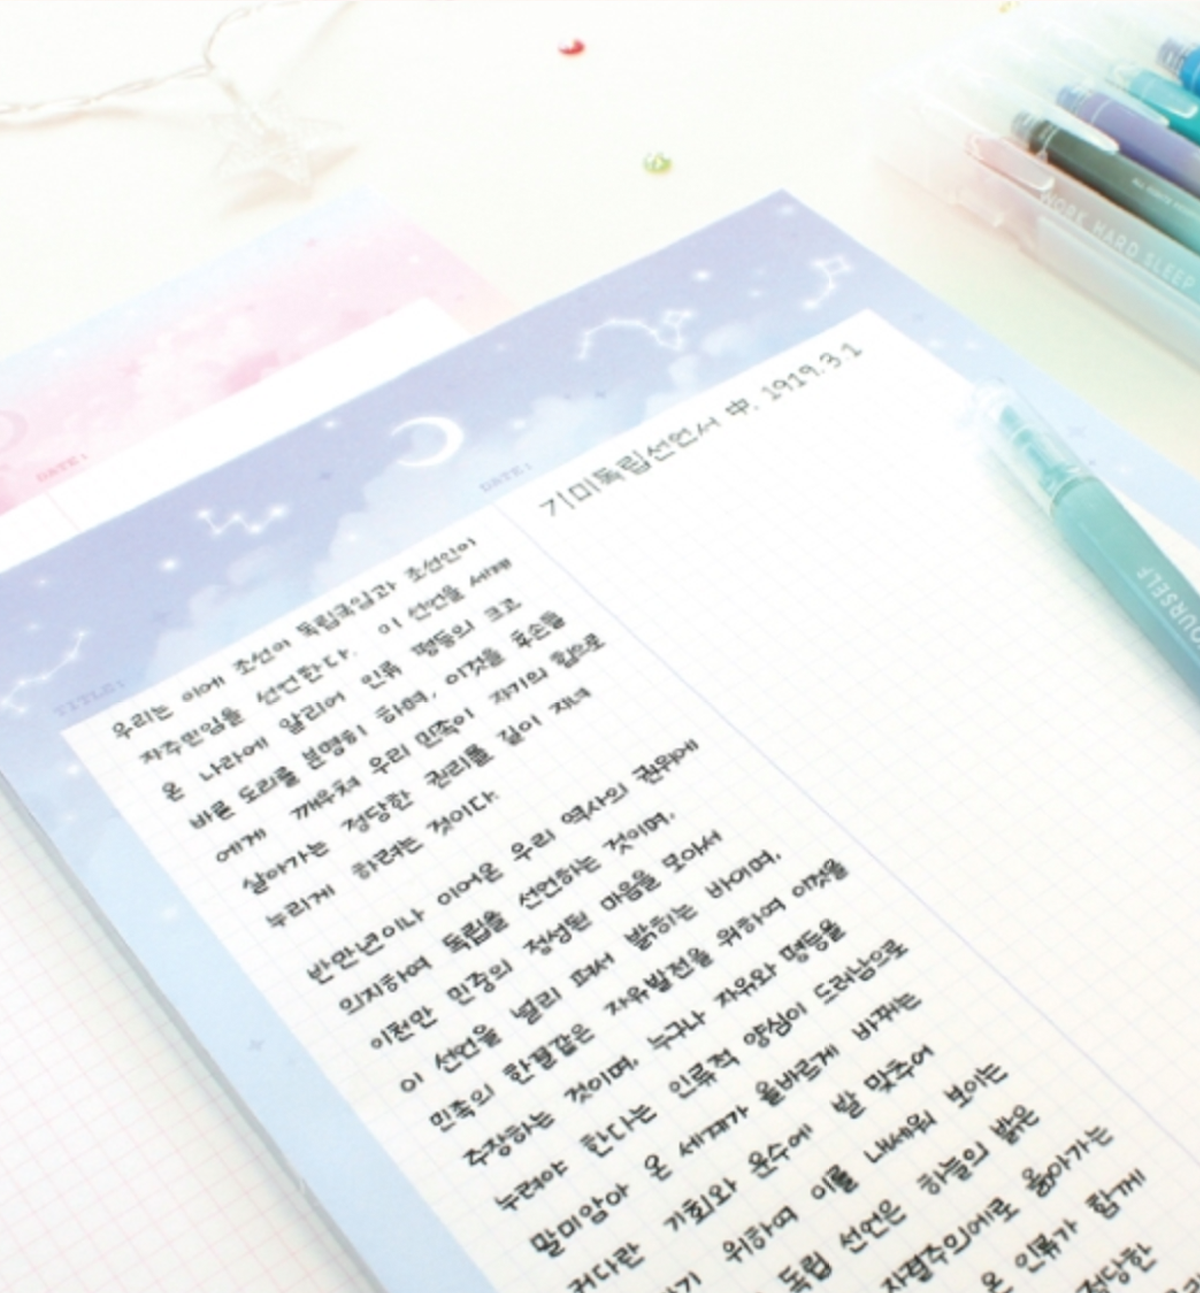 DATE:
DATE:
TITLE:
기미독립선언서 中. 1919.3.1
우리는 이에 조선이 독립국임과 조선인이
자주민임을 선언한다. 이 선언을 세계
온 나라에 알리어 인류 평등의 크고
바른 도리를 분명히 하며, 이것을 후손들
에게 깨우쳐 우리 민족이 자기의 힘으로
살아가는 정당한 권리를 길이 지녀
누리게 하려는 것이다.
반만년이나 이어온 우리 역사의 권위에
의지하여 독립을 선언하는 것이며,
이천만 민중의 정성된 마음을 모아서
이 선언을 널리 펴서 밝히는 바이며,
민족의 한결같은 자유발전을 위하여 이것을
주장하는 것이며, 누구나 자유와 평등을
누려야 한다는 인류적 양심이 드러남으로
말미암아 온 세계가 올바르게 바뀌는
커다란 기회와 운수에 발 맞추어
위하여 이를 내세워 보이는
독립 선언은 하늘의 밝은
자결주의에로 옮아가는
온 인류가 함께
정당한
WORK HARD SLEEP
OURSELF